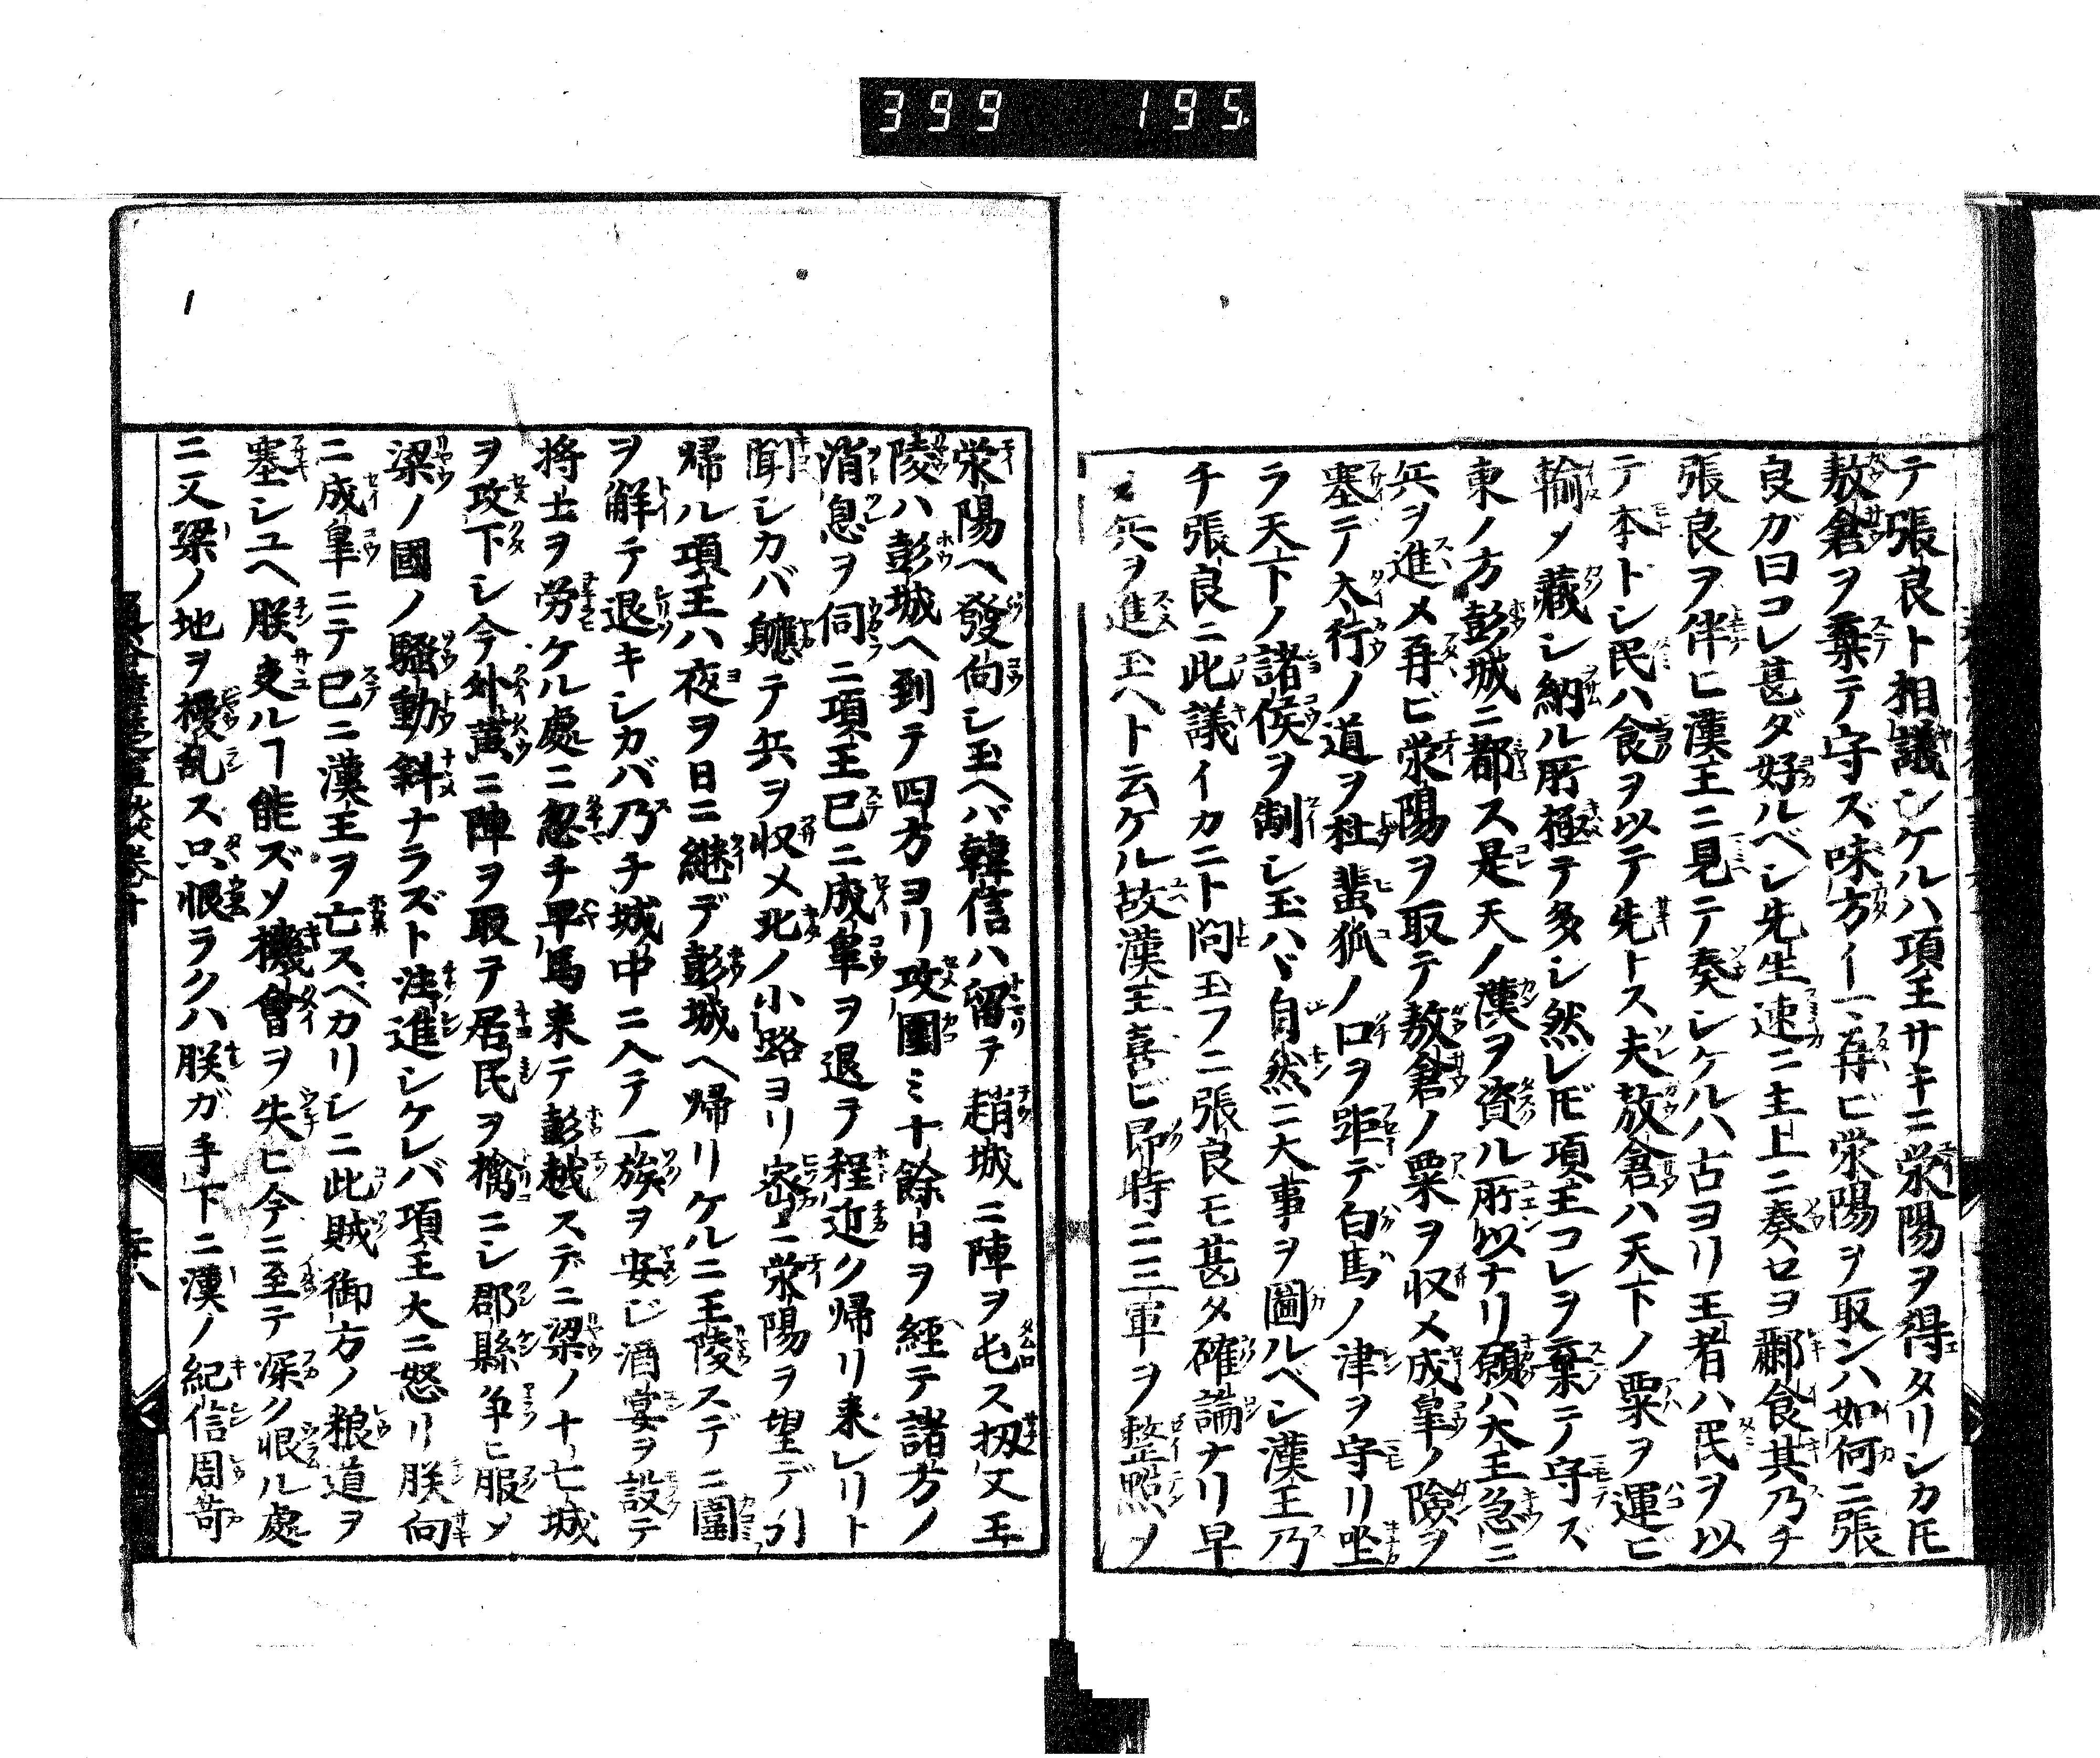 399 195.
テ張良ト相議シケルハ項王サキニ滎陽ヲ得タリシカ𪜈
敖倉ヲ棄テ守ズ味方イマ再ビ栄陽ヲ取ンハ如何ニ張
良ガ曰コレ甚ダ好ルベシ先生速ニ主上ニ奏セヨ酈食其乃チ
張良ヲ伴ヒ漢王ニ見テ奏シケルハ古ヨリ王者ハ民ヲ以
テ本トシ民ハ食ヲ以テ先トス夫敖倉ハ天下ノ粟ヲ運ビ
輸メ蔵シ納ル所極テ多シ然レ𪜈項王コレヲ棄テ守ズ
東ノ方彭城ニ都ス是天ノ漢ヲ資ル所以ナリ願ハ大王急ニ
兵ヲ進メ再ビ滎陽ヲ取テ敖倉ノ粟ヲ収メ成皐ノ険ヲ
塞デ太行ノ道ヲ杜蜚狐ノ口ヲ距デ白馬ノ津ヲ守リ坐
ラ天下ノ諸侯ヲ制シ玉ハヾ自然ニ大事ヲ圖ルベシ漢王乃
チ張良ニ此議イカニト問玉フニ張良モ甚タ確論ナリ早
兵ヲ進玉ヘト云ケル故漢王喜ビ即時ニ三軍ヲ整點メ
滎陽ヘ發向シ玉ヘバ韓信ハ留テ趙城ニ陣ヲ屯ス扨又王
陵ハ彭城ヘ到テ四方ヨリ攻圍ミ十餘日ヲ經テ諸方ノ
消息ヲ伺ニ項王已ニ成皐ヲ退テ程近ク帰リ来レリト
聞シカバ軈テ兵ヲ収メ北ノ小路ヨリ密ニ滎陽ヲ望デ引
帰ル項王ハ夜ヲ日ニ継デ彭城ヘ帰リケルニ王陵スデニ圍
ヲ解テ退キシカバ乃チ城中ニ入テ一族ヲ安ジ酒宴ヲ設テ
将士ヲ労ケル處ニ忽チ早馬来テ彭越スデニ梁ノ十七城
ヲ攻下シ今外黄ニ陣ヲ取テ居民ヲ擒ニシ郡縣争ヒ服メ
梁ノ國ノ騒動斜ナラズト注進シケレバ項王大ニ怒リ朕向
ニ成皐ニテ已ニ漢王ヲ亡スベカリシニ此賊御方ノ粮道ヲ
塞シユヘ朕支ルヿ能ズメ機會ヲ失ヒ今ニ至テ深ク恨ル處
ニ又梁ノ地ヲ擾乱ス只恨ラクハ朕ガ手下ニ漢ノ紀信周苛